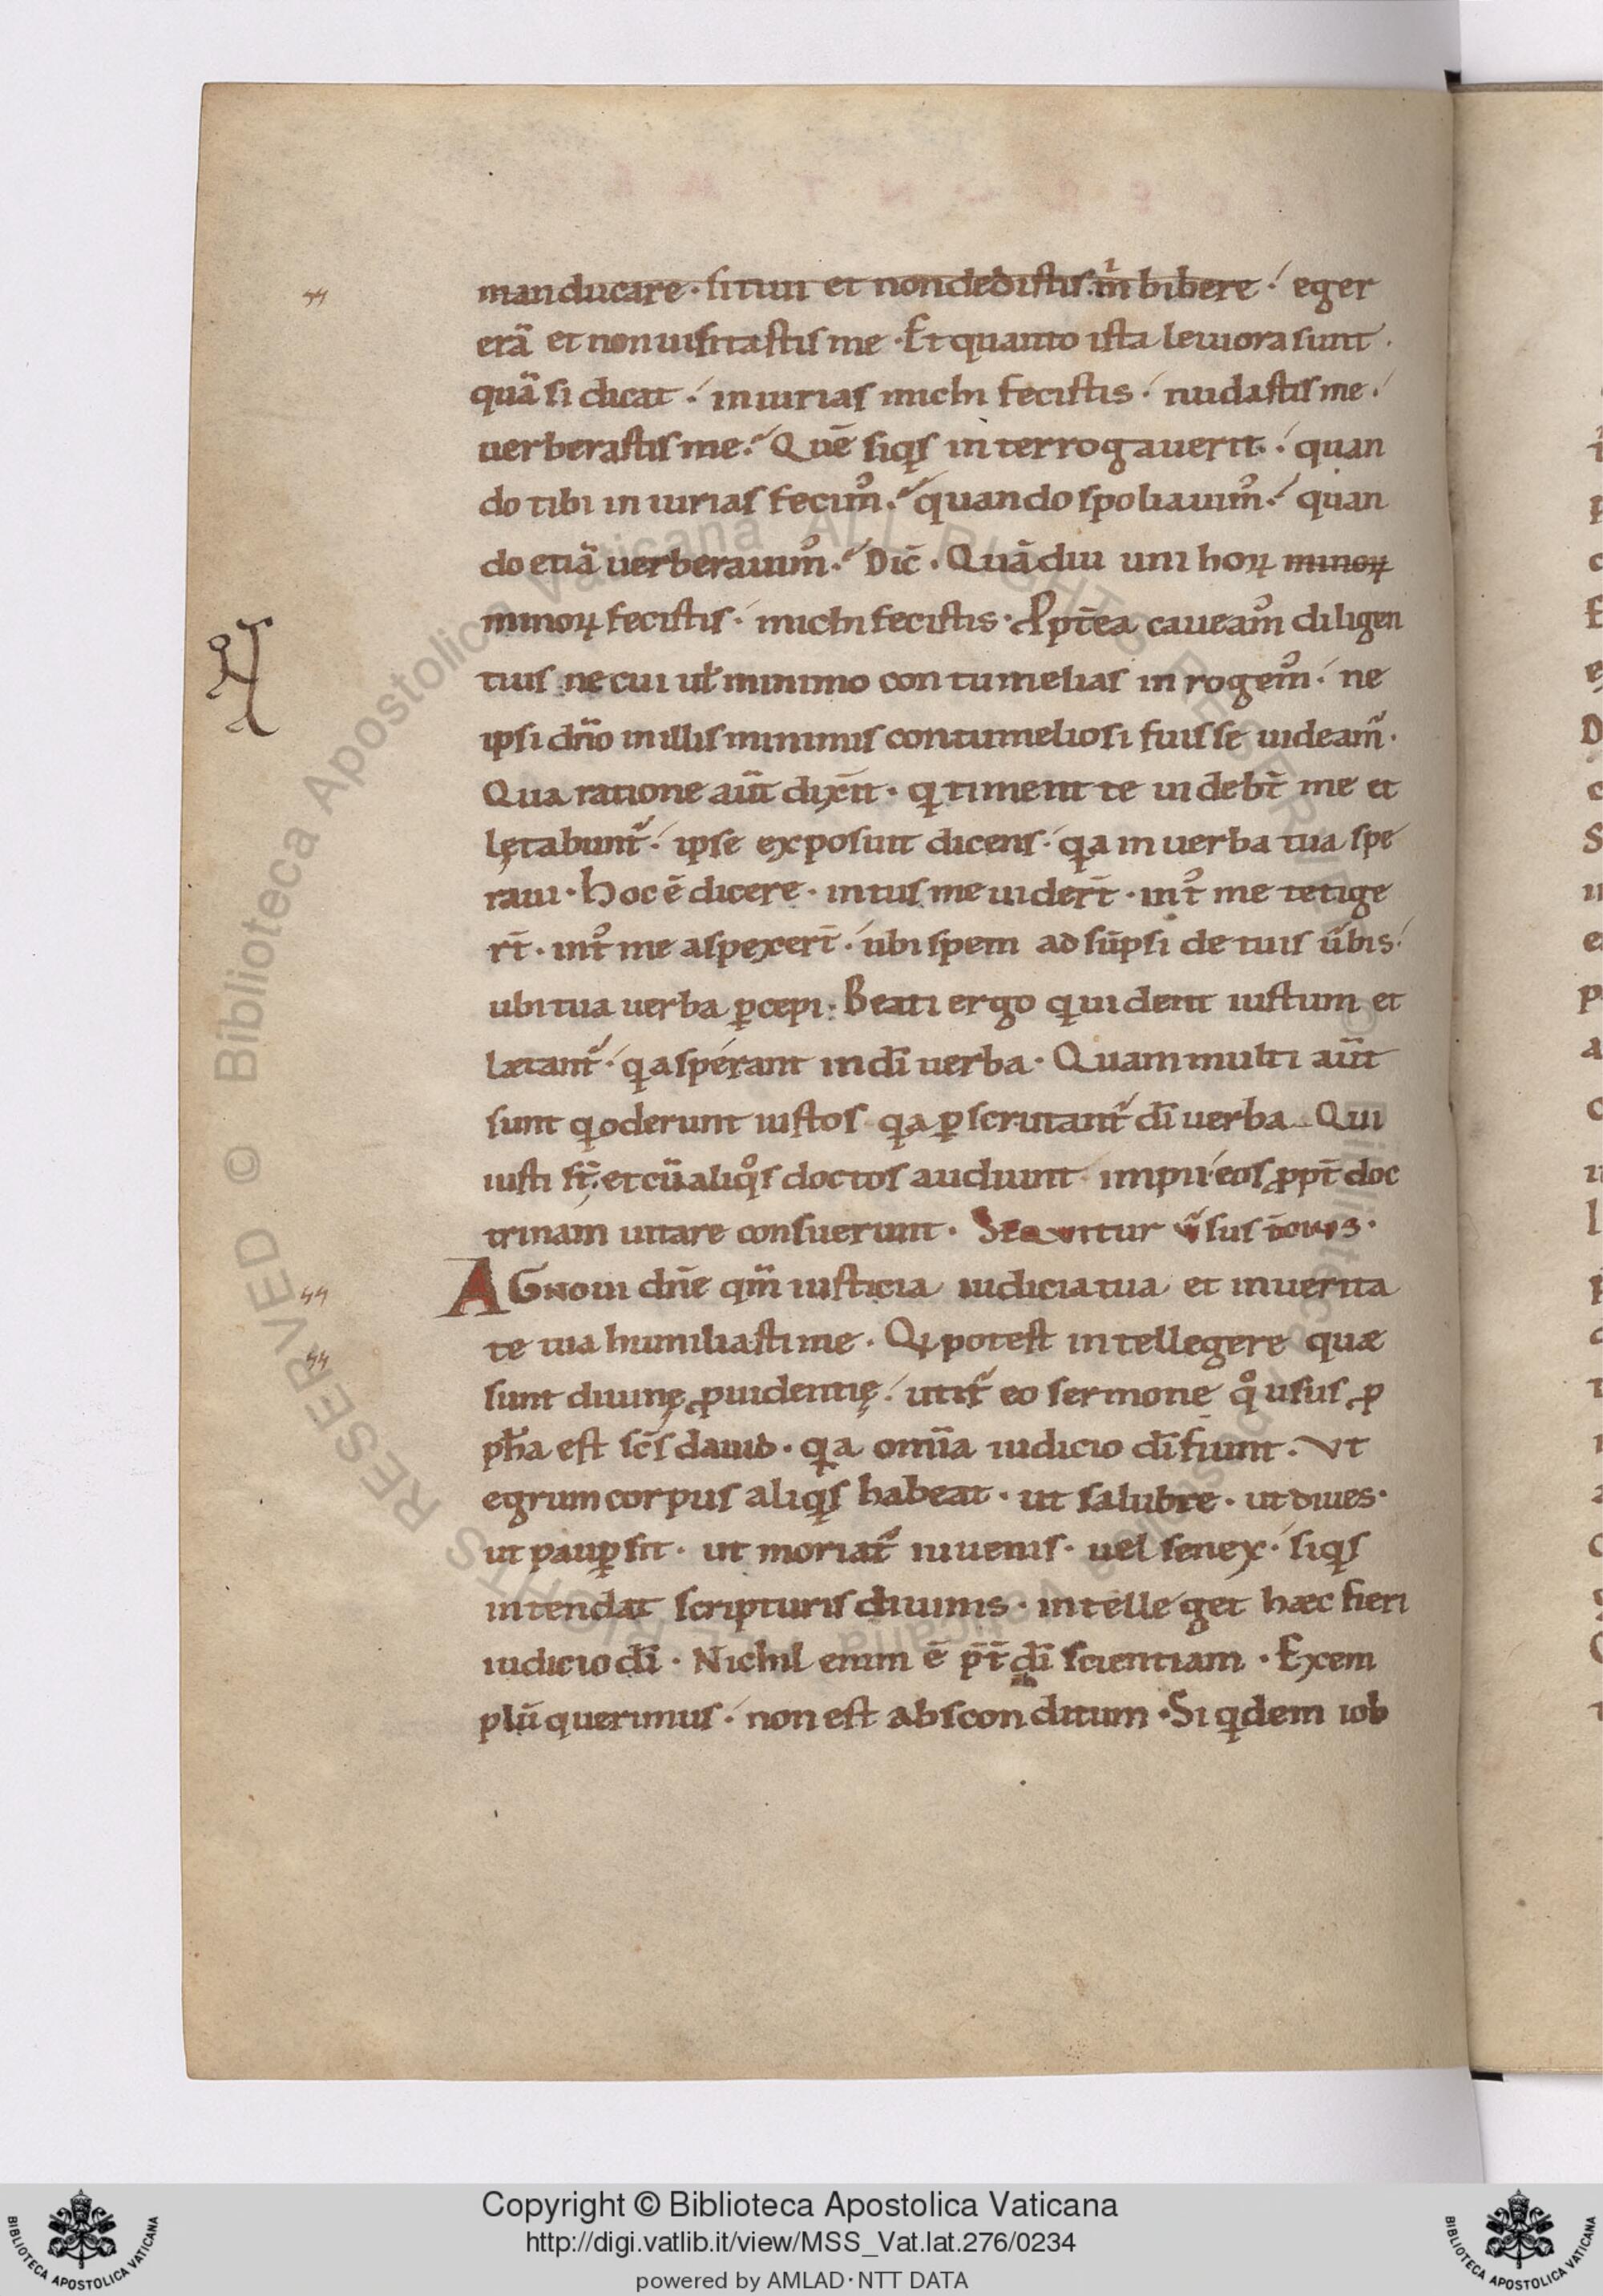 manducare · sitiui et non dedistis m̅ bibere · eger
erā et non uisitastis me · Et quanto ista leuiora sunt ·
quā si dicat · iniurias michi fecistis · nudastis me ·
uerberastis me · Quē siqͥs interrogauerit · quan
do tibi iniurias fecimꝰ · quando spoliauimꝰ · quan
do etiā uerberauimꝰ · Dic̄ · Quādiu uni hoꝝ minoꝝ
minoꝝ fecistis · michi fecistis · Ppt̄ea caueamꝰ diligen
tius ne cui uł minimo contumelias inrogemꝰ · ne
ipsi dn̄o in illis minimis contumeliosi fuisse uideam᷑ ·
Qua ratione aūt dixīt · qͥ timent te uidebt̄ me et
lętabunt᷑ · ipse exposuit dicens · qͥa in uerba tua spe
raui · Hoc ē dicere · intus me uidert̄ · intꝰ me tetige
rt̄ · intꝰ me aspexert̄ · ubi spem adsūpsi de tuis ūbis ·
ubi tua uerba ꝑcepi · Beati ergo qui dent iustum et
lætant᷑ · qͥa sperant in dī uerba · Quam multi aūt
sunt qͥ oderunt iustos qͥa ꝑscrutant᷑ dī uerba Qui
iusti st̄ · et cū aliqͦs doctos audiunt impii · eos ꝓpt̄ doc
trinam uitare consuerunt · Sequitur ūsus
AGnoui dn̄e qm̄ iusticia iudicia tua et in uerita
te tua humiliasti me · Qͥ potest intellegere quæ
sunt diuinę ꝓuidentię · utit᷑ eo sermone qͦ usus ꝓ
ph̄a est sc̄s dauid · qͥa omīa iudicio dī fiunt · Vt
egrum corpus aliqͥs habeat · ut salubre · ut diues ·
ut pauꝑ sit · ut moriat᷑ iuuenis · uel senex · siqͥs
intendat scripturis diuinis · intelleget hæc fieri
iudicio dī · Nichil enim ē p̄t̄ dī scientiam · Exem
plū querimus · non est absconditum · Si qͥdem iob
Copyright © Biblioteca Apostolica Vaticana
http://digi.vatlib.it/view/MSS_Vat.lat.276/0234
powered by AMLAD·NTT DATA